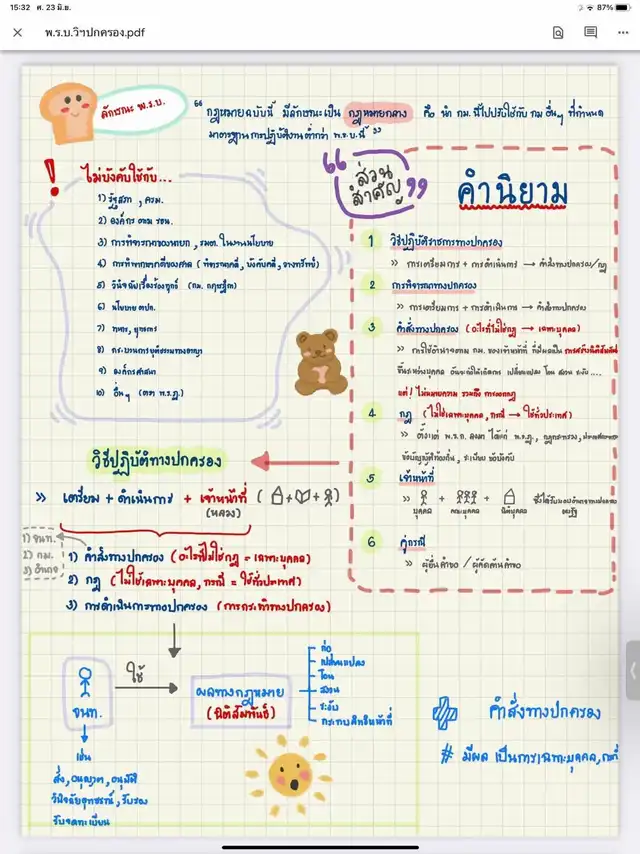 15:32 ศ. 23 มิ.ย.
87%
พ.ร.บ.วิฯปกครอง.pdf
ลักษณะ พ.ร.บ.
“ กฎหมายฉบับนี้ มีลักษณะเป็น กฎหมายกลาง คือ นำ กม. นี้ไปปรับใช้กับ กม อื่นๆ ที่กำหนด
มาตรฐานการปฏิบัติงานต่ำกว่า พ.ร.บ.นี้ ”
! ไม่บังคับใช้กับ...
1) รัฐสภา , ครม.
2) องค์กร ตาม รธน.
3) การพิจารณาของนายก , รมต. ในงานนโยบาย
4) การพิจารณาคดีของศาล ( พิจารณาคดี, บังคับคดี, วางทรัพย์)
5) วินิจฉัยเรื่องร้องทุกข์ (กม. กฤษฎีกา)
6) นโยบาย ตปท.
7) ทหาร, ยุทธการ
8) กระบวนการยุติธรรมทางอาญา
9) องค์กรศาสนา
10) อื่นๆ (ตรา พ.ร.ฎ.)
“ ส่วน
สำคัญ ”
คำนิยาม
1 วิธีปฏิบัติราชการทางปกครอง
» การเตรียมการ + การดำเนินการ → คำสั่งทางปกครอง/กฎ
2 การพิจารณาทางปกครอง
» การเตรียมการ + การดำเนินการ → คำสั่งทางปกครอง
3 คำสั่งทางปกครอง (อะไรที่ไม่ใช่กฎ → เฉพาะบุคคล)
» การใช้อำนาจตาม กม. ของเจ้าหน้าที่ ที่มีผลเป็น การสร้างนิติสัมพันธ์
ขึ้นระหว่างบุคคล อันจะก่อให้เกิดการ เปลี่ยนแปลง โอน สงวน ระงับ ....
แต่! ไม่หมายความ รวมถึง การออกกฎ
4 กฎ (ไม่ใช่เฉพาะบุคคล, กรณี → ใช้ทั่วประเทศ)
» ตั้งแต่ พ.ร.ก. ลงมา ได้แก่ พ.ร.ฎ., กฎกระทรวง,
ข้อบัญญัติท้องถิ่น, ระเบียบ ข้อบังคับ
5 เจ้าหน้าที่
» + +
บุคคล คณะบุคคล นิติบุคคล
6 คู่กรณี
» ผู้ยื่นคำขอ / ผู้คัดค้านคำขอ
วิธีปฏิบัติทางปกครอง
» เตรียม + ดำเนินการ + เจ้าหน้าที่ ( + + )
(หลวง)
1) จนท.
2) กม.
3) อำนาจ
1) คำสั่งทางปกครอง (อะไรที่ไม่ใช่กฎ = เฉพาะบุคคล)
2) กฎ (ไม่ใช่เฉพาะบุคคล, กรณี = ใช้ทั่วประเทศ)
3) การดำเนินการทางปกครอง (การกระทำทางปกครอง)
จนท.
ใช้
ผลทางกฎหมาย
(นิติสัมพันธ์)
ก่อ
เปลี่ยนแปลง
โอน
สงวน
ระงับ
กระทบสิทธิหน้าที่
เช่น
สั่ง, อนุญาต, อนุมัติ
วินิจฉัยอุทธรณ์, รับรอง
รับจดทะเบียน
คำสั่งทางปกครอง
# มีผล เป็นการเฉพาะบุคคล,